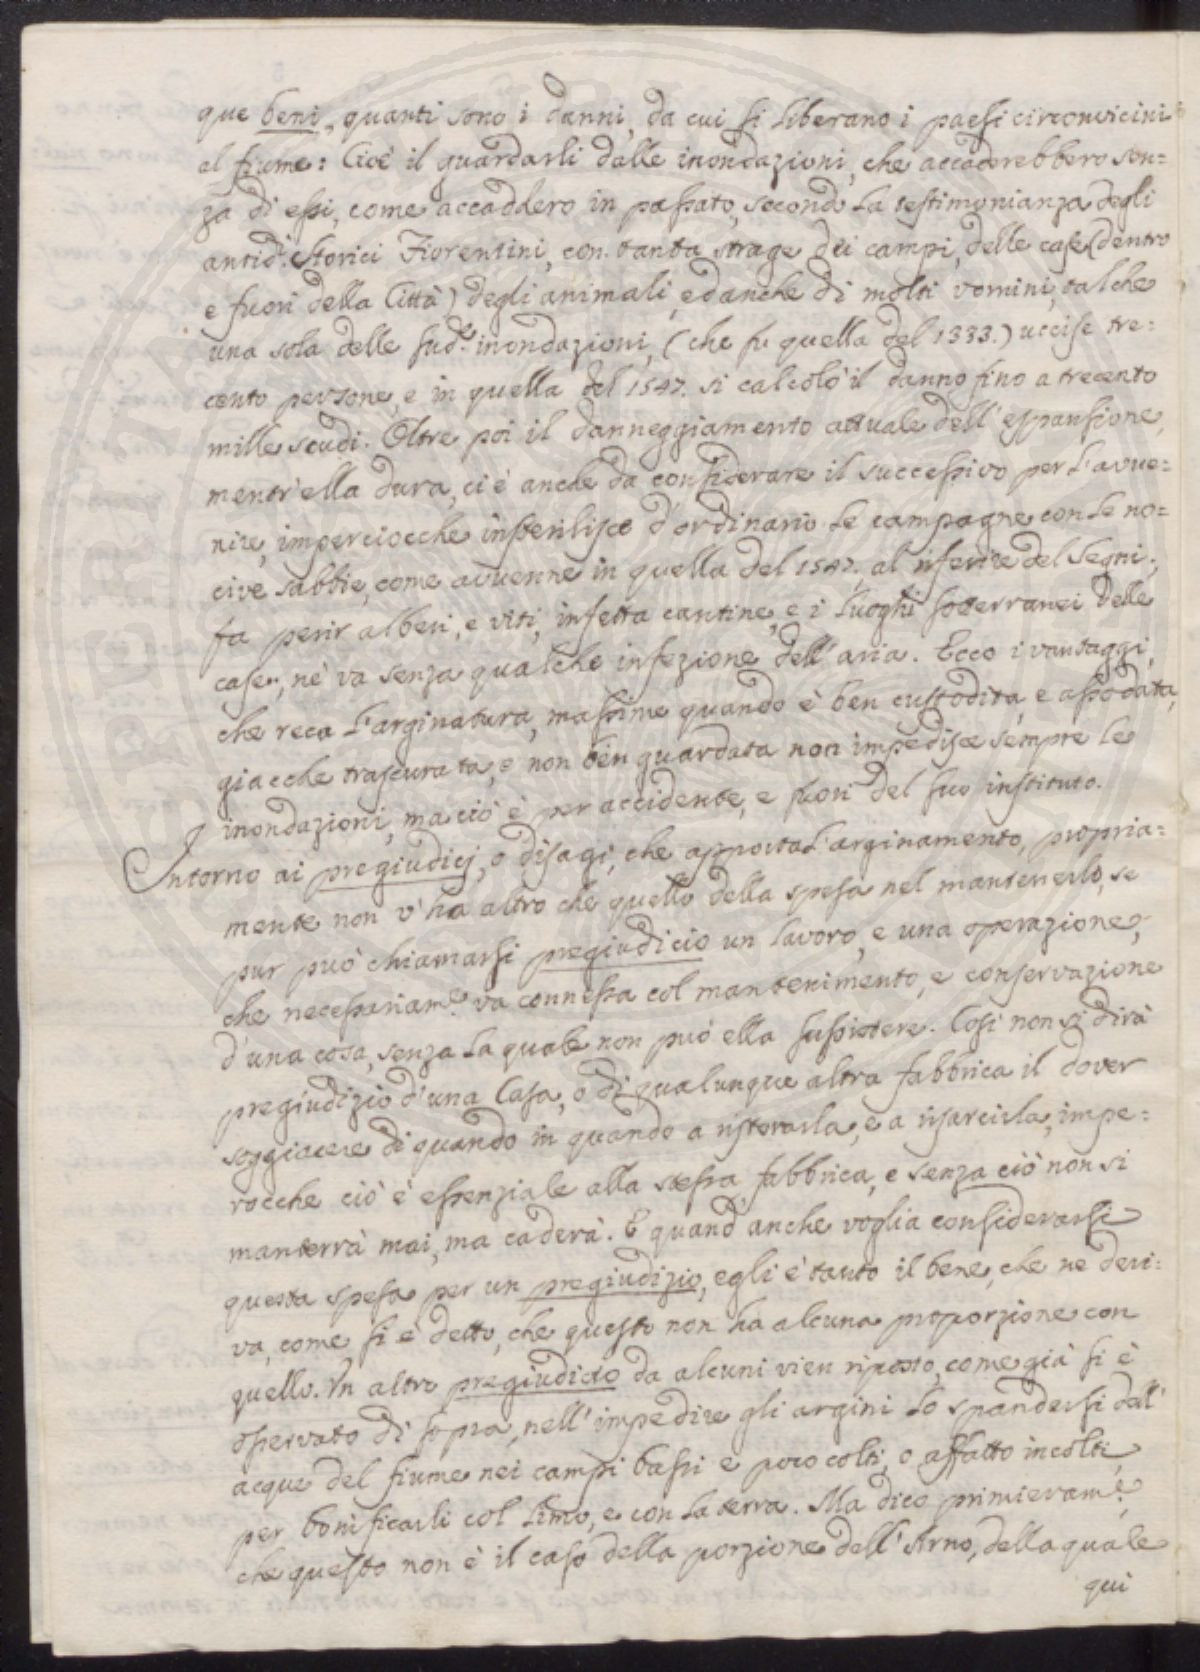 que beni, quanti sono i danni, da cui si liberano i paesi circonvicini
al fiume: Cioè il guardarli dalle inondazioni, che accaderebbero sen=
za di essi, come accaddero in passato, secondo la testimonianza degli
antichi Storici Fiorentini, con tanta strage dei campi, delle case (dentro
e fuori della Città) degli animali, ed anche di molti vomini, talche
una sola delle sud.e inondazioni, (che fu quella del 1333.) uccise tre=
cento persone, e in quella del 1547. si calcolò il danno fino a trecento
mille scudi. Oltre poi il danneggiamento attuale dell'espansione,
mentr'ella dura, ci è anche da considerare il successivo per l'avve=
nire, imperciocche insterilisce d'ordinario le campagne con le no=
cive sabbie, come avvenne in quella del 1547. al riferire del Segni;
fa perir alberi, e viti, infetta cantine, e i luoghi sotterranei delle
case, nè va senza qualche infezione dell'aria. Ecco i vantaggi,
che reca l'arginatura, massime quando è ben custodita, e assodata,
giacche trascurata, e non ben guardata non impedisce sempre le
inondazioni, ma ciò è per accidente, e fuori del suo instituto.
Intorno ai pregiudicj, o disagi, che apporta l'arginamento, propria=
mente non v'ha altro che quello della spesa nel mantenerlo, se
pur può chiamarsi pregiudicio un lavoro, e una operazione,
che necessariam.e va connessa col mantenimento, e conservazione
d'una cosa, senza la quale non può ella sussistere. Così non si dirà
pregiudizio d'una Casa, o di qualunque altra fabbrica il dover
soggiacere di quando in quando a ristorarla, e a risarcirla, impe=
rocche ciò è essenziale alla stessa fabbrica, e senza ciò non si
manterrà mai, ma caderà. E quand'anche voglia considerarsi
questa spesa per un pregiudizio, egli è tanto il bene, che ne deri=
va, come si è detto, che questo non ha alcuna proporzione con
quello. Un altro pregiudicio da alcuni vien riposto, come già si è
osservato di sopra, nell'impedire gli argini lo spandersi dell'
acque del fiume nei campi bassi e poco colti, o affatto incolti,
per bonificarli col limo, e con la terra. Ma dico primieram.e,
che questo non è il caso della porzione dell'Arno, della quale
qui